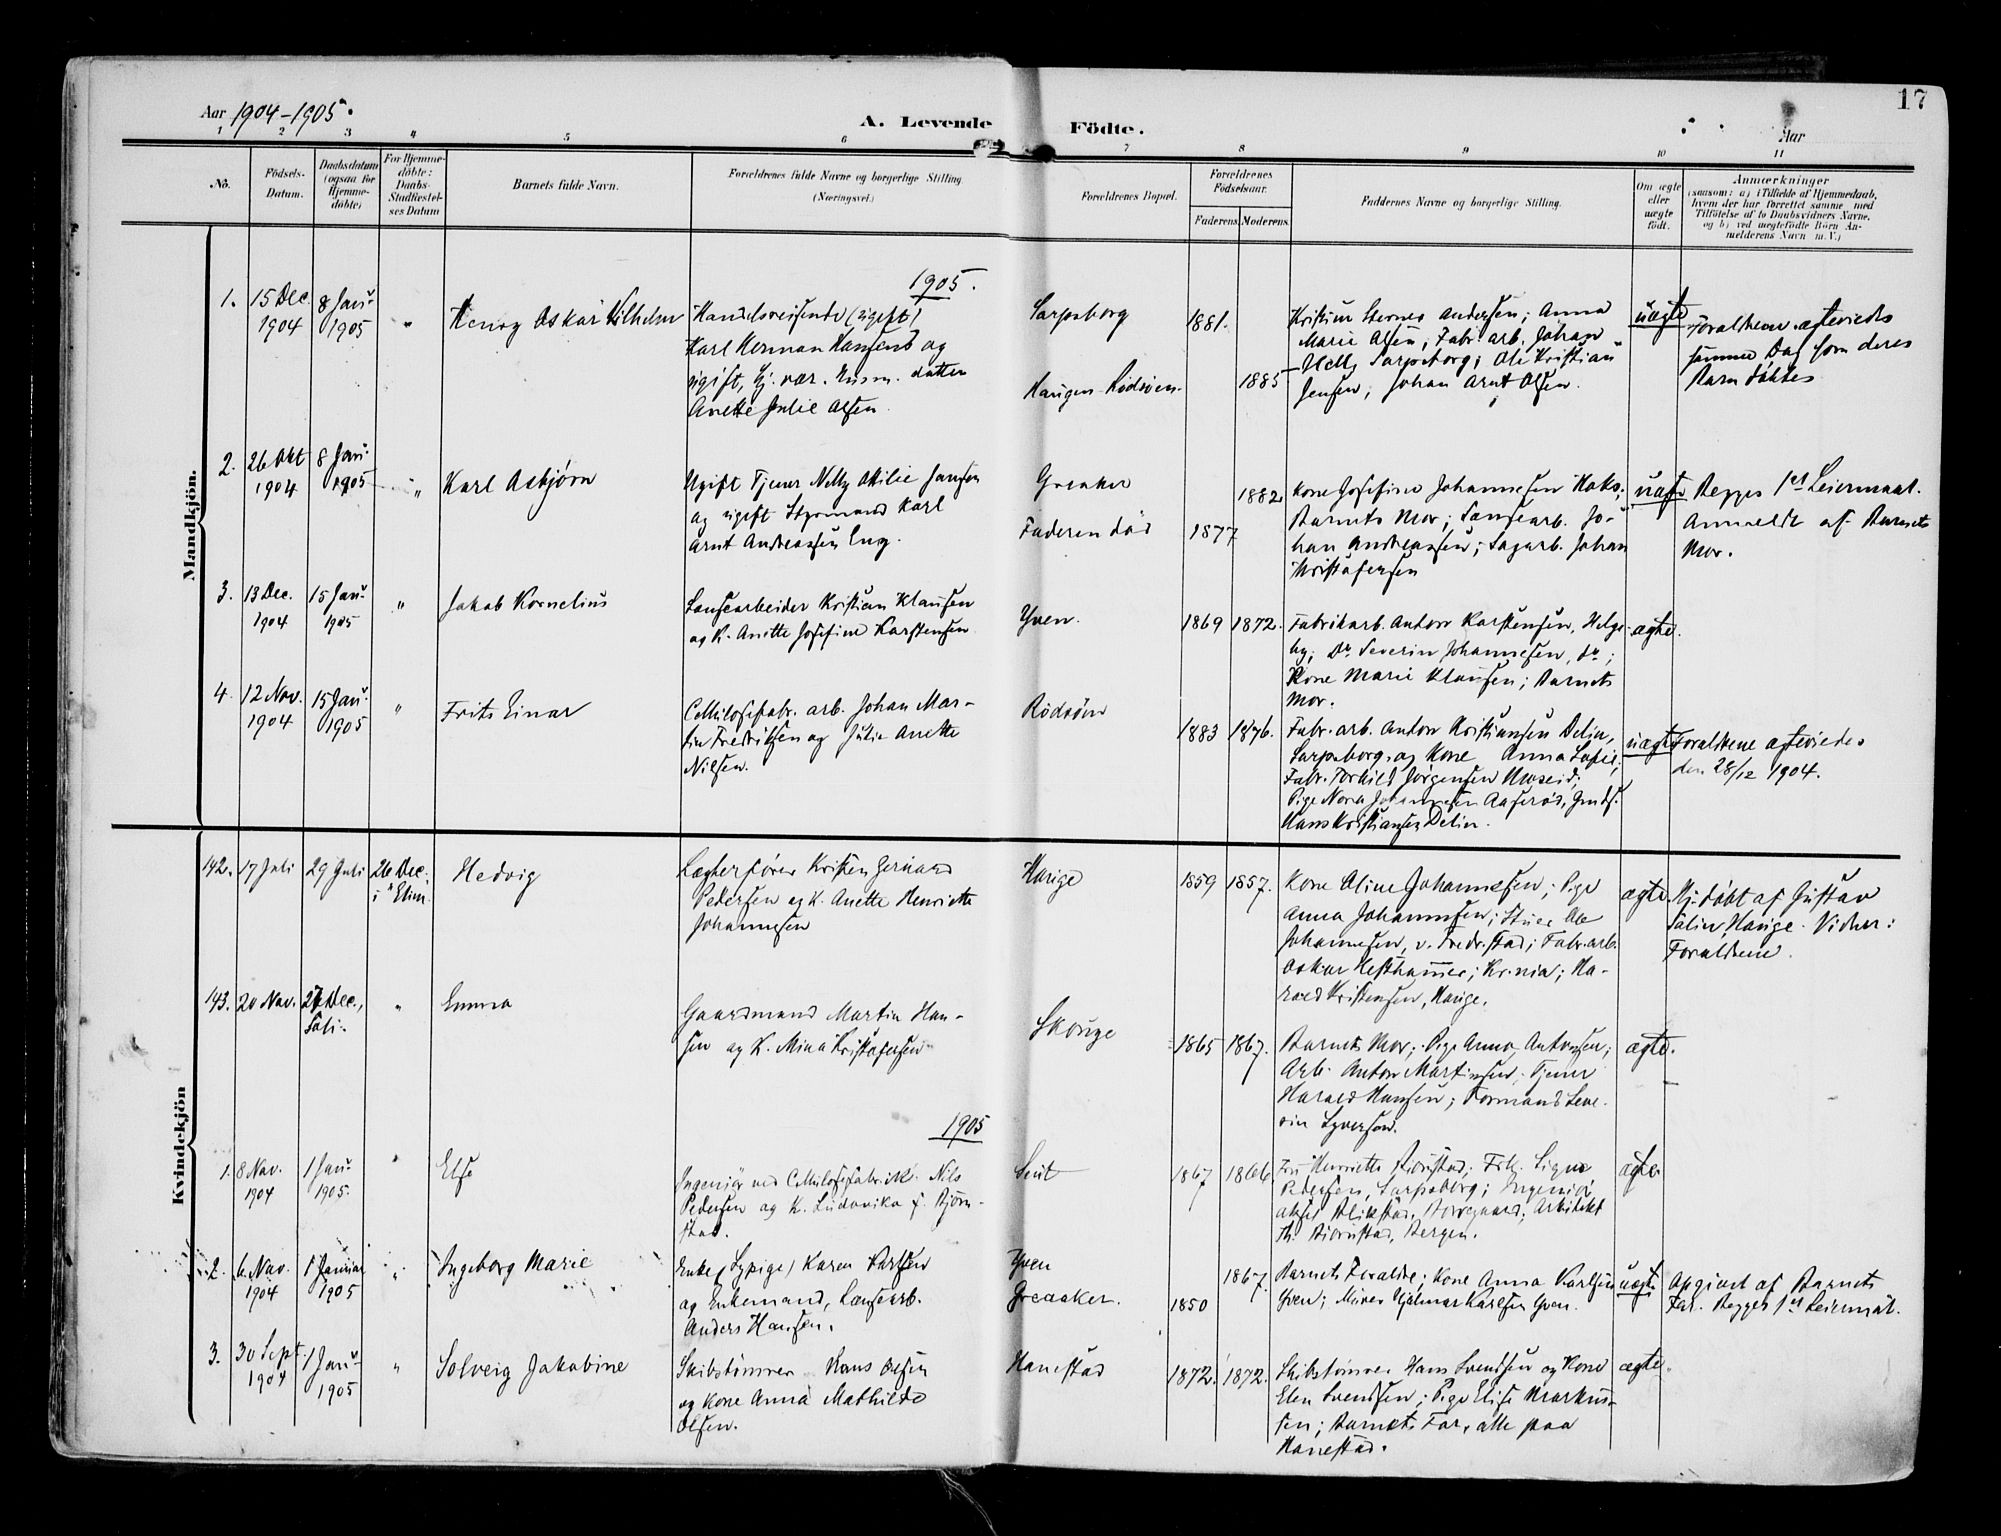 17
Aar 1904-1905.
A. Levende Födte.
Aar
1 2 3 4 5 6 7 8 9 10 11
No.
Födsels-Datum.
Daabsdatum (ogsaa for Hjemme-döbte)
For Hjemme-döbte: Daabs-Stadfæstel-ses Datum
Barnets fulde Navn.
Forældrenes fulde Navne og borgerlige Stilling
(Næringsvei.)
Forældrenes Bopæl.
Forældrenes Födselsaar.
Faderens. Moderens.
Faddernes Navne og borgerlige Stilling.
Om ægte eller uægte födt.
Anmærkninger
(saasom: a) i Tilfælde af Hjemmedaab,
hvem der har forrettet samme med
Tilföielse af to Daabsvidners Navne.
og b) ved uægtefödte Börn An-
melderens Navn m. V.)
Mandkjön.
1905.
1. 15 Dec. 1904 8 Jan. 1905 " Henry Oskar Vilhelm
Handelsreisende (ugift)
Karl Herman Hansen og
ugift, Hj. vær. Husm. datter
Anette Julie Olsen.
Sarpsborg
Haugen Rödsöen.
1881. 1885
Kristine Andersen; Anna
Marie Olsen; Fabr. arb. Johan
Sarpsborg; Ole Kristian
Jensen; Johan Arnt Olsen.
uægte
Forældrene ægteviedes
samme Dag som deres
Barn döbtes
2. 26 Okt 1904 8 Jan. 1905 " Karl Asbjørn
Ugift Tjener Nelly Otilie Jansen
og ugift Styrmand Karl
Arnt Andreassen Eng.
Greaker
Faderen död
1877 1882.
Kone Josefine Johannesen
Barnets Mor; Lansearb. Jo-
han Andreassen; Sagarb. Johan
Kristofersen
uægte
Begges 1ste Leiermaal.
Anmeldt af Barnets
Mor.
3. 13 Dec. 1904 15 Jan. 1905 " Jakob Kornelius
Lansearbeider Kristian Klausen
og K. Anette Josefine Karstensen
Yven.
1869 1872.
Fabrikarb. Anton Karstensen, Helge-
by; Do. Severin Johannesen, do.;
Kone Marie Klausen; Barnets
Mor.
ægte.
4. 12 Nov. 1904 15 Jan. 1905 " Frits Einar
Cellulosefabr. arb. Johan Mar-
tin Fredriksen og Julie Anette
Nilsen.
Rödsöen
1883 1876.
Fabr. arb. Anton Kristiansen Delin,
Sarpsborg, og Kone Anna Sofie;
Fabr. Torkild Jørgensen Moseid;
Pige Nora Johannesen Aaserød, Gmds.
Hans Kristiansen Delin.
uægte
Forældrene ægteviedes
den 28/12 1904.
Kvindekjön
142. 17 Juli 29 Juli 26 Dec. i Elim. Hedvig
Lægterfører Kristen Gerhard
Pedersen og K. Anette Henriette
Johannesen
Hauge
1859 1857.
Kone Oline Johannesen; Pige
Anna Johannesen; Ole
Johannesen, v. Fredr.stad; Fabr. arb.
Oskar Hesthammer; Kr.nia; Ha-
rald Kristensen, Hauge.
ægte.
Hj. döbt af Gustav
Solin, Hauge. Vidner:
Forældrene.
143. 20 Nov. 27 Dec., Soli. " Emma
Gaardmand Martin Han-
sen og K. Mina Kristofersen
Skouge
1865 1867.
Barnets Mor; Pige Anna Antonsen;
Arb. Anton Martinsen; Tjener
Harald Hansen; Formand Seve-
rin Syversen.
ægte.
1905
1. 8 Nov. 1904 1 Jan. 1905. " Else
Ingeniør ved Cellulosefabrik. Nils
Pedersen og K. Ludovika f. Bjørn-
stad.
1867 1866
Fru Henriette Bjørnstad; Frk. Signe
Pedersen, Sarpsborg; Ingeniør
Aksel Blikstad, Borregaard; Arkitekt
Th. Bjørnstad, Bergen.
ægte
2. 6 Nov. 1904 1 Januar 1905 " Ingeborg Marie
Enke (Sypige) Karen Karlsen
og Enkemand, Lansearb.
Anders Hansen.
Yven
Greaaker.
1850 1867.
Barnets Forældre; Kone Anna Karlsen
Yven; Murer Hjalmar Karlsen Yven.
uægte
Opgivet af Barnets
Far. Begges 1ste Leiermaal.
3. 30 Sept. 1904 1 Jan. 1905 " Solveig Jakobine
Skibstømrer Hans Olsen
og Kone Anna Mathilde
Olsen.
Hanestad
1872. 1872.
Skibstømrer Hans Svendsen og Kone
Elen Svendsen; Pige Elise Markus-
sen; Barnets Far, alle paa
Hanestad.
ægte.